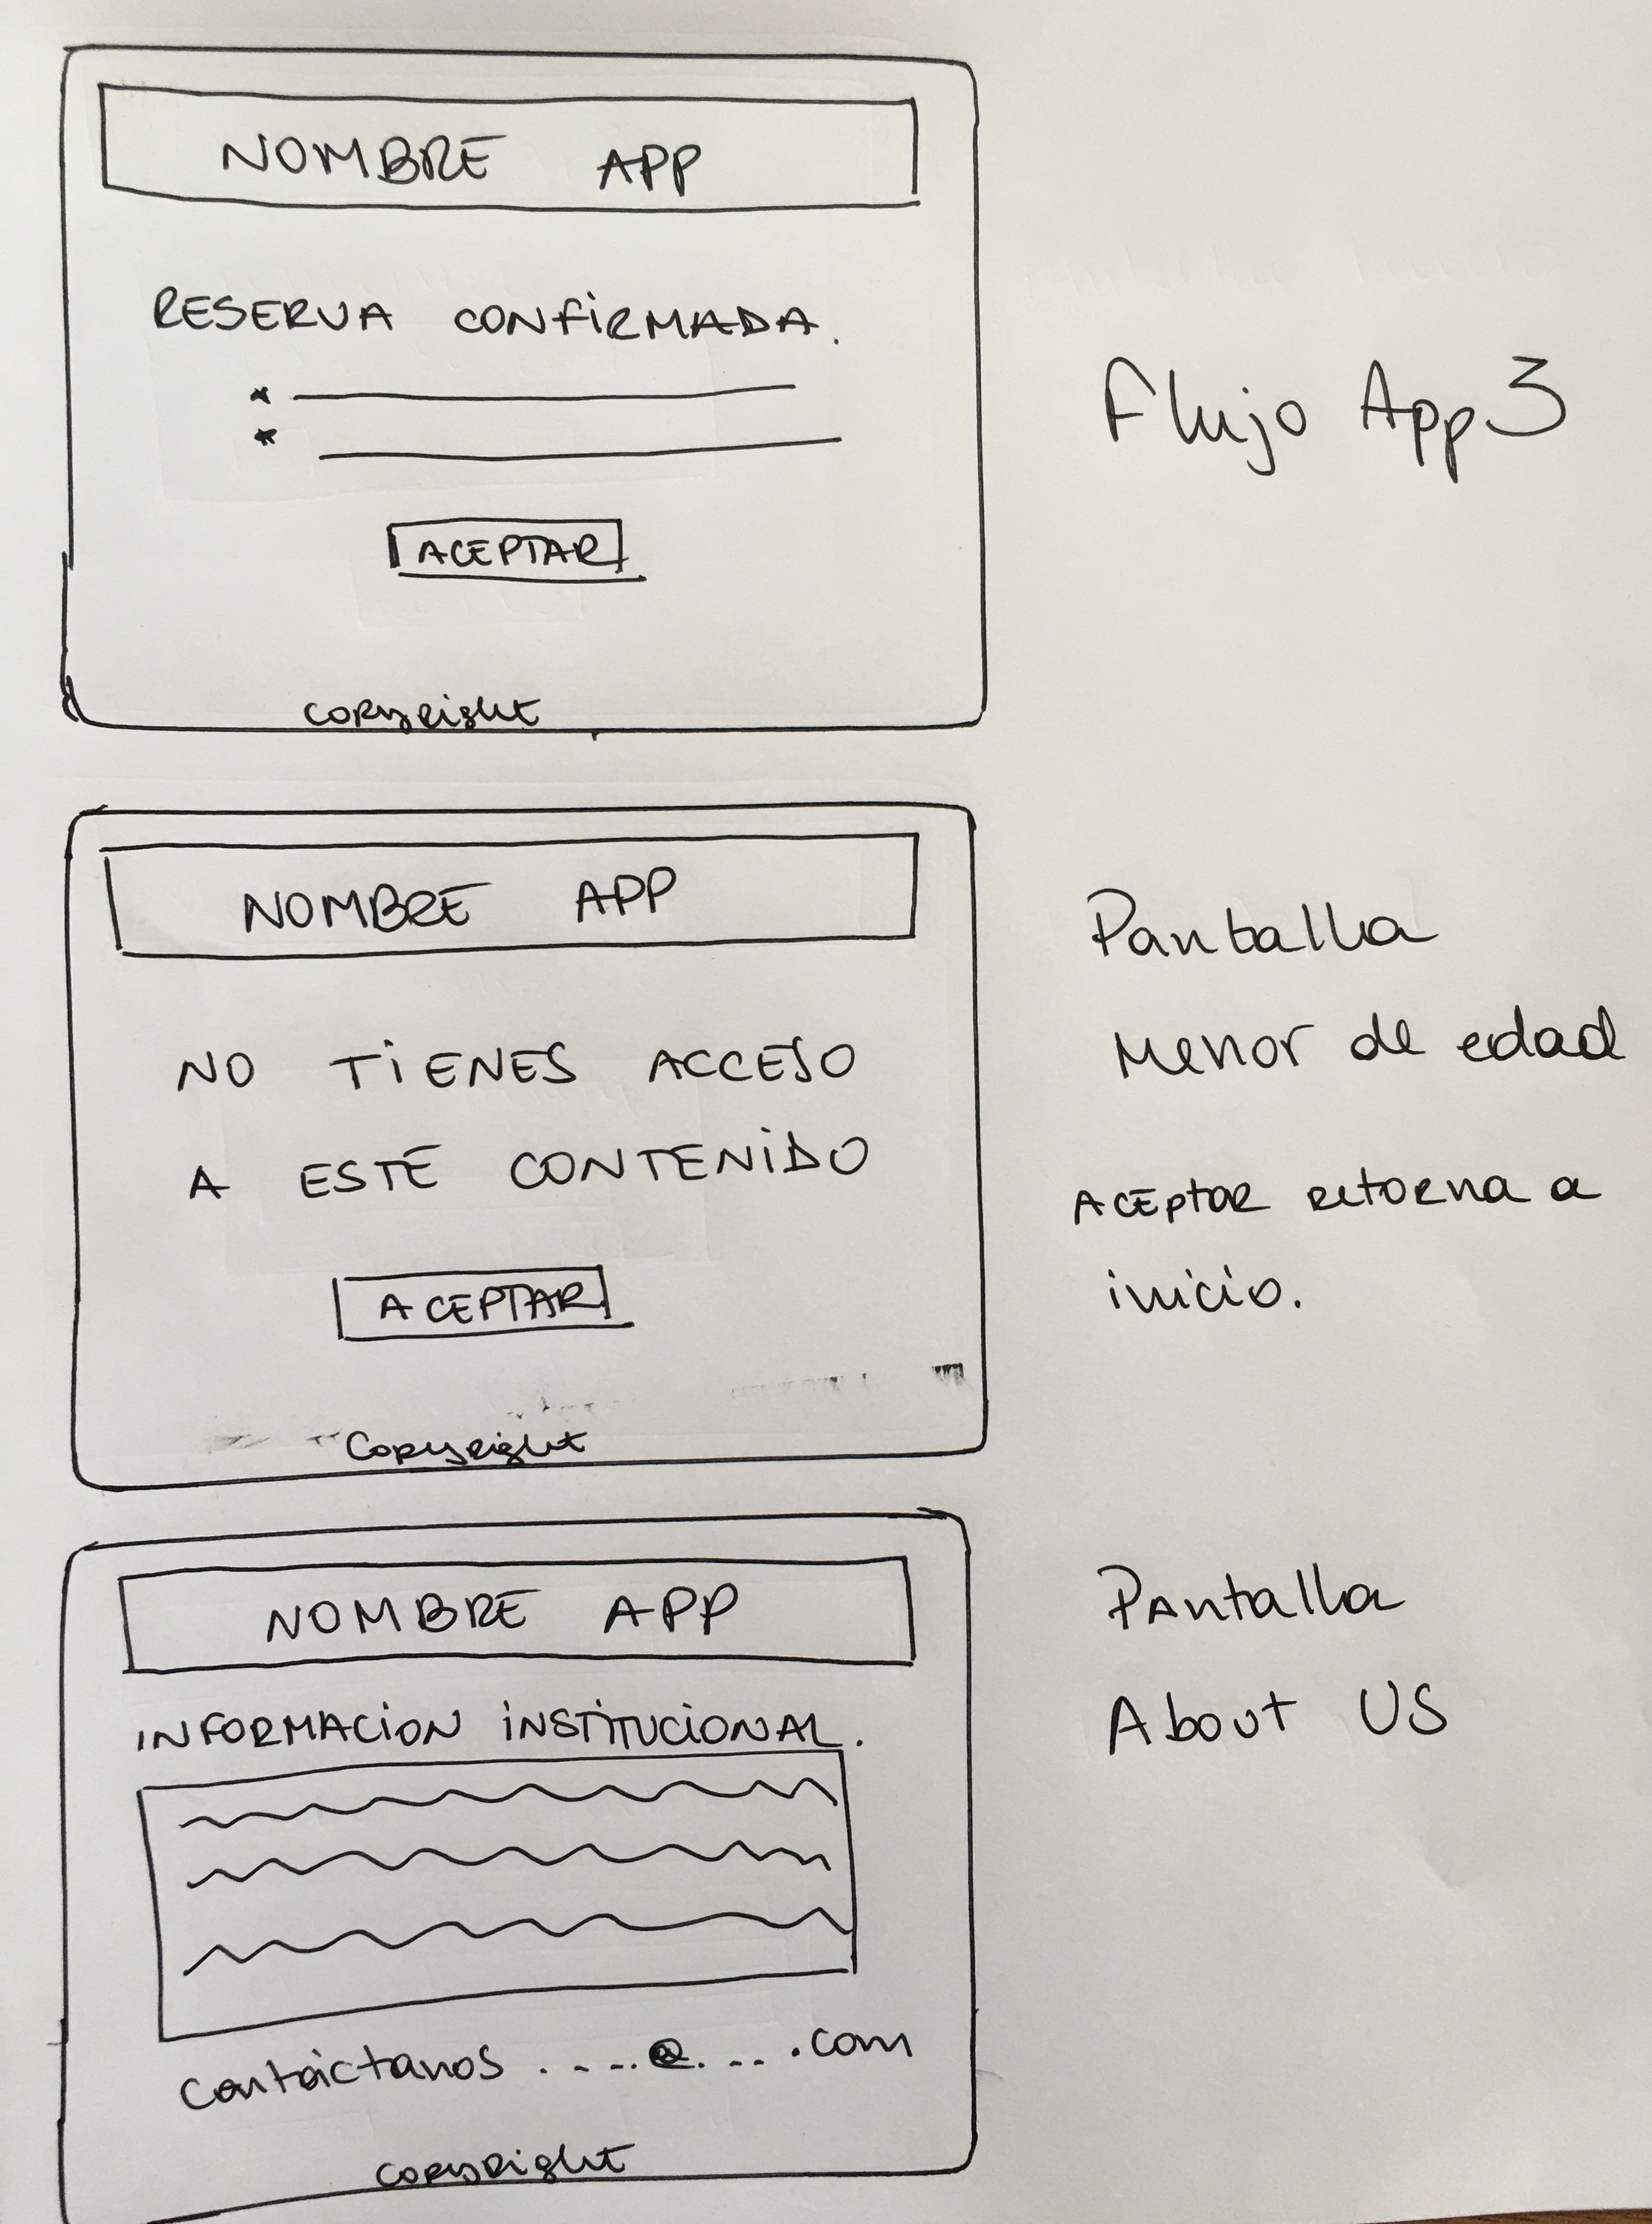 NOMBRE APP
RESERVA CONFIRMADA.
*
*
ACEPTAR
copyright
Flujo App 3
NOMBRE APP
NO TIENES ACCESO
A ESTE CONTENIDO
ACEPTAR
Copyright
Pantalla
Menor de edad
ACEPTAR retorna a
inicio.
NOMBRE APP
INFORMACION INSTITUCIONAL.
Contáctanos ....@....com
copyright
Pantalla
About US